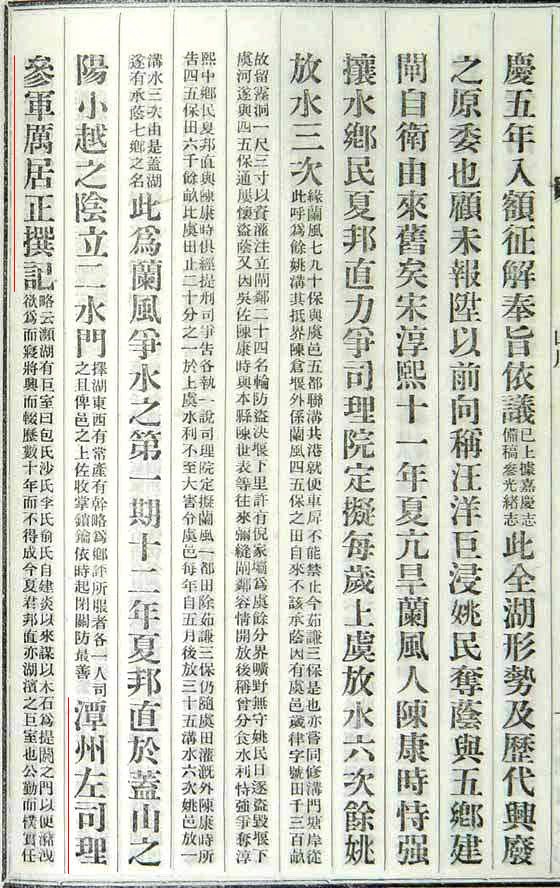 慶五年入額征解奉旨依議已上據嘉慶志備稿參光緒志此全湖形勢及歷代興廢
之原委也顧未報陞以前向稱汪洋巨浸姚民奪蔭與五鄉建
閘自衛由來舊矣宋淳熙十一年夏亢旱蘭風人陳康時恃强
攘水鄉民夏邦直力爭司理院定擬每歲上虞放水六次餘姚
放水三次緣蘭風七九十保與虞邑五都聯溝其港就便車戽不能禁止今茹謙三保是也亦嘗同修溝門塘岸從
此呼為餘姚溝其抵界陳倉堰外係蘭風四五保之田自來不該承蔭因有虞邑歲律字號田千三百畝
故留霪洞一尺三寸以資灌注立閘鄰二十四名輪防盜決堰下里許有倪家壩為虞餘分界曠野無守姚民日逐盜毀堰下
虞河遂與四五保通屢懷盜蔭又因吳佐陳康時與本縣陳世表等往來彌縫閘鄰容情開放後稱曾分食水利恃強爭奪淳
熙中鄉民夏邦直與陳康時俱經提刑司爭告各執一說司理院定擬蘭風一都田除茹謙三保仍隨虞田灌溉外陳康時所
告四五保田六千餘畝比虞田止二十分之一於上虞水利不至大害分虞邑每年自五月後放三十五溝水六次姚邑放一
溝水三次由是蓋湖遂有承蔭七鄉之名此為蘭風爭水之第一期十二年夏邦直於蓋山之
陽小越之陰立二水門擇湖東西有常產有幹略為鄉評所服者各一人司之且俾邑之上佐收掌鎖鑰依時起閉關防最善潭州左司理
參軍厲居正撰記略云瀕湖有巨室曰包氏沙氏李氏俞氏自建炎以來謀以木石為提閼之門以便瀦洩
欲為而寢將興而輟歷數十年而不得成今夏君邦直亦湖濱之巨室也公勤而樸實任